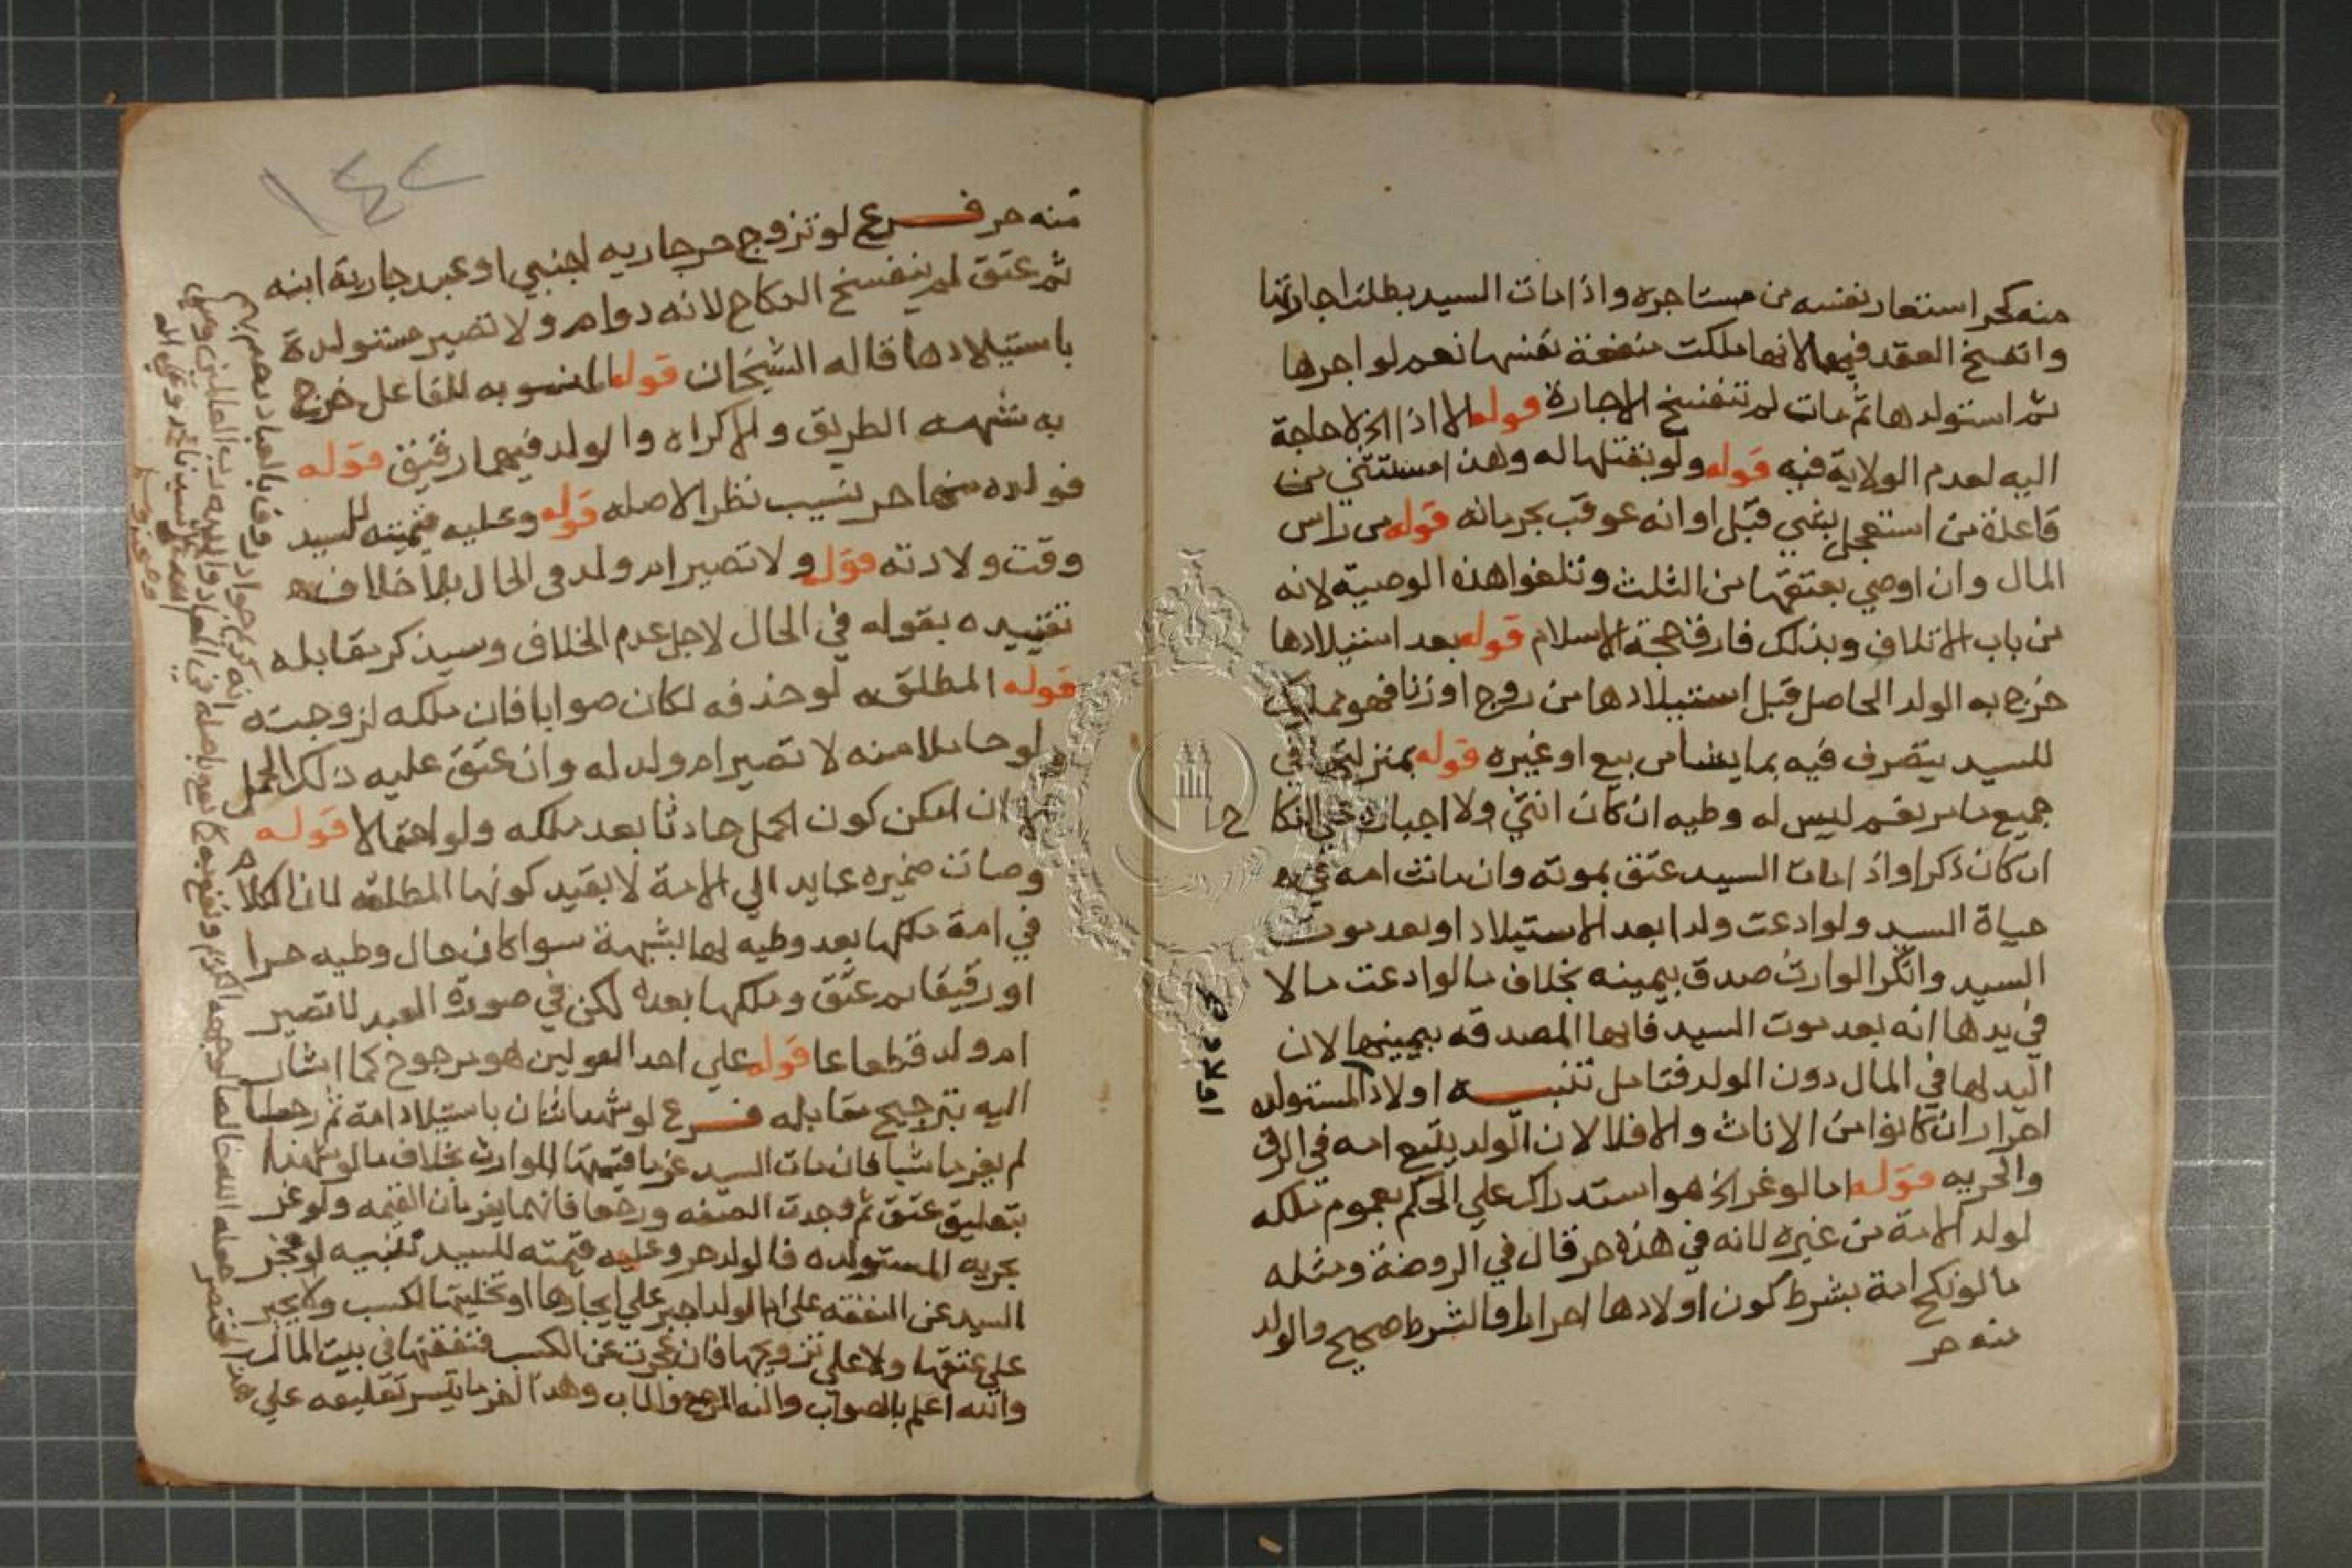 منه كحر استعار نفسه من مستاجره واذا مات السيد بطلت اجارتها
وانفسخ العقد فيها لانها ملكت منفعة نفسها نعم لو اجرها
ثم استولدها ثم مات لم تنفسخ الاجارة قوله الا اذا الخ لا حاجة
اليه لعدم الولاية فيه قوله ولو بقتلها له وهذا مستثني من
قاعدة من استعجل بشي قبل اوانه عوقب بحرمانه قوله من راس
المال وان اوصي بعتقها من الثلث وتلغوا هذه الوصية لانه
من باب الاتلاف وبذلك فارق حجة الاسلام قوله بعد استيلادها
خرج به الولد الحاصل قبل استيلادها من زوج او زنا فهو مملوك
للسيد يتصرف فيه بما يشا من بيع او غيره قوله بمنزلتها في
جميع ما مر نعم ليس له وطيه ان كان انثي ولا اجباره علي النكاح
ان كان ذكرا واذا مات السيد عتق بموته وان ماتت امه في
حياة السيد ولو ادعت ولدا بعد الاستيلاد او بعد موت
السيد وانكر الوارث صدق بيمينه بخلاف ما لو ادعت مالا
في يدها انه بعد موت السيد فانها المصدقه بيمينها لان
اليد لها في المال دون الولد فتامل تنبيه اولاد المستولده
احرار ان كانوا من الاناث والا فلا لان الولد يتبع امه في الرق
والحريه قوله اما لو غر الخ هو استدراك علي الحكم بعموم ملكه
لولد الامة من غيره لانه في هذه حر قال في الروضة ومثله
ما لو نكح امة بشرط كون اولادها احرارا فالشرط صحيح والولد
منه حر
منه حر فرع لو تزوج حر جاريه اجنبي او عبد جارية ابنه
ثم عتق لم ينفسخ النكاح لانه دوام ولا تصير مستولدة
باستيلادها قاله الشيخان قوله المنسوبه للفاعل خرج
به شبهة الطريق والاكراه والولد فيهما رقيق قوله
فولده منها حر نسيب نظرا لاصله قوله وعليه قيمته للسيد
وقت ولادته قوله ولا تصير ام ولد في الحال بلا خلاف
تقييده بقوله في الحال لاجل عدم الخلاف وسيذكر مقابله
قوله المطلقه لو حذفه لكان صوابا فان ملكه لزوجته
ولو حاملا منه لا تصير ام ولد له وان عتق عليه ذلك الحمل
ان امكن كون الحمل حادثا بعد ملكه ولو احتمالا قوله
وصارت ضميره عايد الي الامة لا بقيد كونها المطلقه لان الكلام
في امة ملكها بعد وطيه لها بشبهة سوا كان حال وطيه حرا
او رقيقا ثم عتق وملكها بعده لكن في صورة العبد لا تصير
ام ولد قطعا قوله علي احد القولين هو مرجوح كما اشار
اليه بترجيح مقابله فرع لو شهد اثنان باستيلاد امة ثم رجعا
لم يغرما شيا فان مات السيد غرما قيمتها للوارث بخلاف ما لو شهدا
بتعليق عتق ثم وجدت الصفه ورجعا فانهما يغرمان القيمه ولو غر
بحريه المستولده فالولد حر وعليه قيمته للسيد تنبيه لو عجز
السيد عن النفقه علي ام الولد اجبر علي ايجارها او تخليتها لكسب ولا يجبر
علي عتقها ولا علي تزويجها فان عجزت عن الكسب فنفقتها في بيت المال
والله اعلم بالصواب واليه المرجع والماب وهذا اخر ما تيسر تعليقه علي
هذا المختصر جعله الله خالصا لوجهه الكريم ونفع به كما نفع باصله في
انه كريم جواد رؤف بالعباد
١٤٢